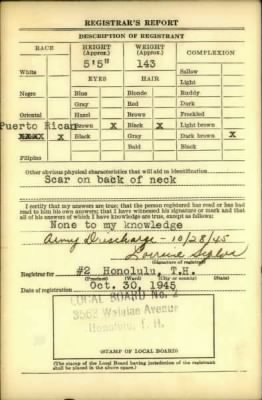 REGISTRAR'S REPORT
DESCRIPTION OF REGISTRANT
RACE HEIGHT (Approx.) WEIGHT (Approx.) COMPLEXION
5'5" 143
White Sallow
EYES HAIR Light
Negro Blue Blonde Ruddy
Gray Red Dark
Oriental Hazel Brown Freckled
Puerto Rican Brown X Black X Light brown
X Black Gray Dark brown X
Bald Black
Filipino
Other obvious physical characteristics that will aid in identification
Scar on back of neck
I certify that my answers are true; that the person registered has read or has had read to him his own answers; that I have witnessed his signature or mark and that all of his answers of which I have knowledge are true, except as follows:
None to my knowledge
Army Discharge - 10/28/45
Lorraine
(Signature of registrar)
Registrar for #2 Honolulu, T.H.
(Precinct) (Ward) (City or county) (State)
Date of registration Oct. 30, 1945
LOCAL BOARD No. 2
Waialae Avenue
Honolulu, T. H.
(STAMP OF LOCAL BOARD)
(The stamp of the Local Board having jurisdiction of the registrant shall be placed in the above space.)